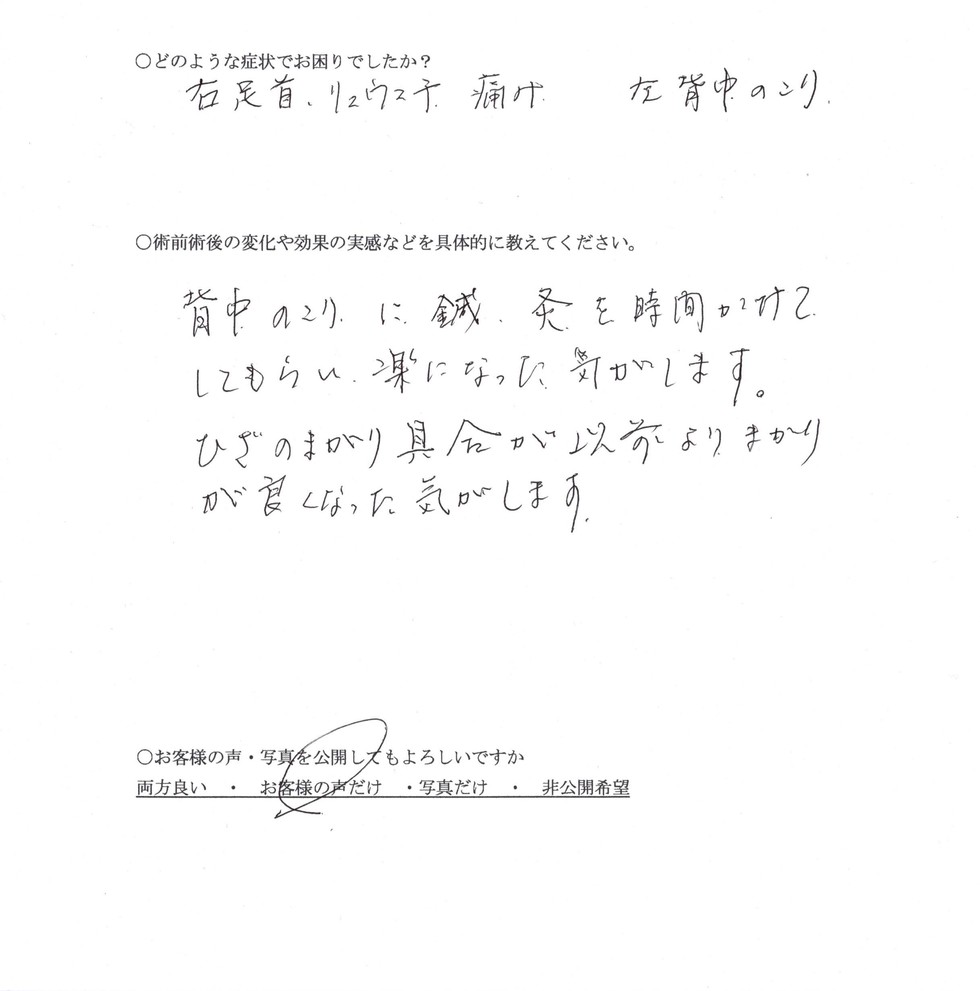 ○どのような症状でお困りでしたか？
右足首、リュウマチ 痛み 左背中のこり
○術前術後の変化や効果の実感などを具体的に教えてください。
背中のこりに鍼、灸を時間かけて
してもらい、楽になった気がします。
ひざのまがり具合が以前よりまがり
が良くなった気がします。
○お客様の声・写真を公開してもよろしいですか
両方良い ・ お客様の声だけ ・写真だけ ・ 非公開希望